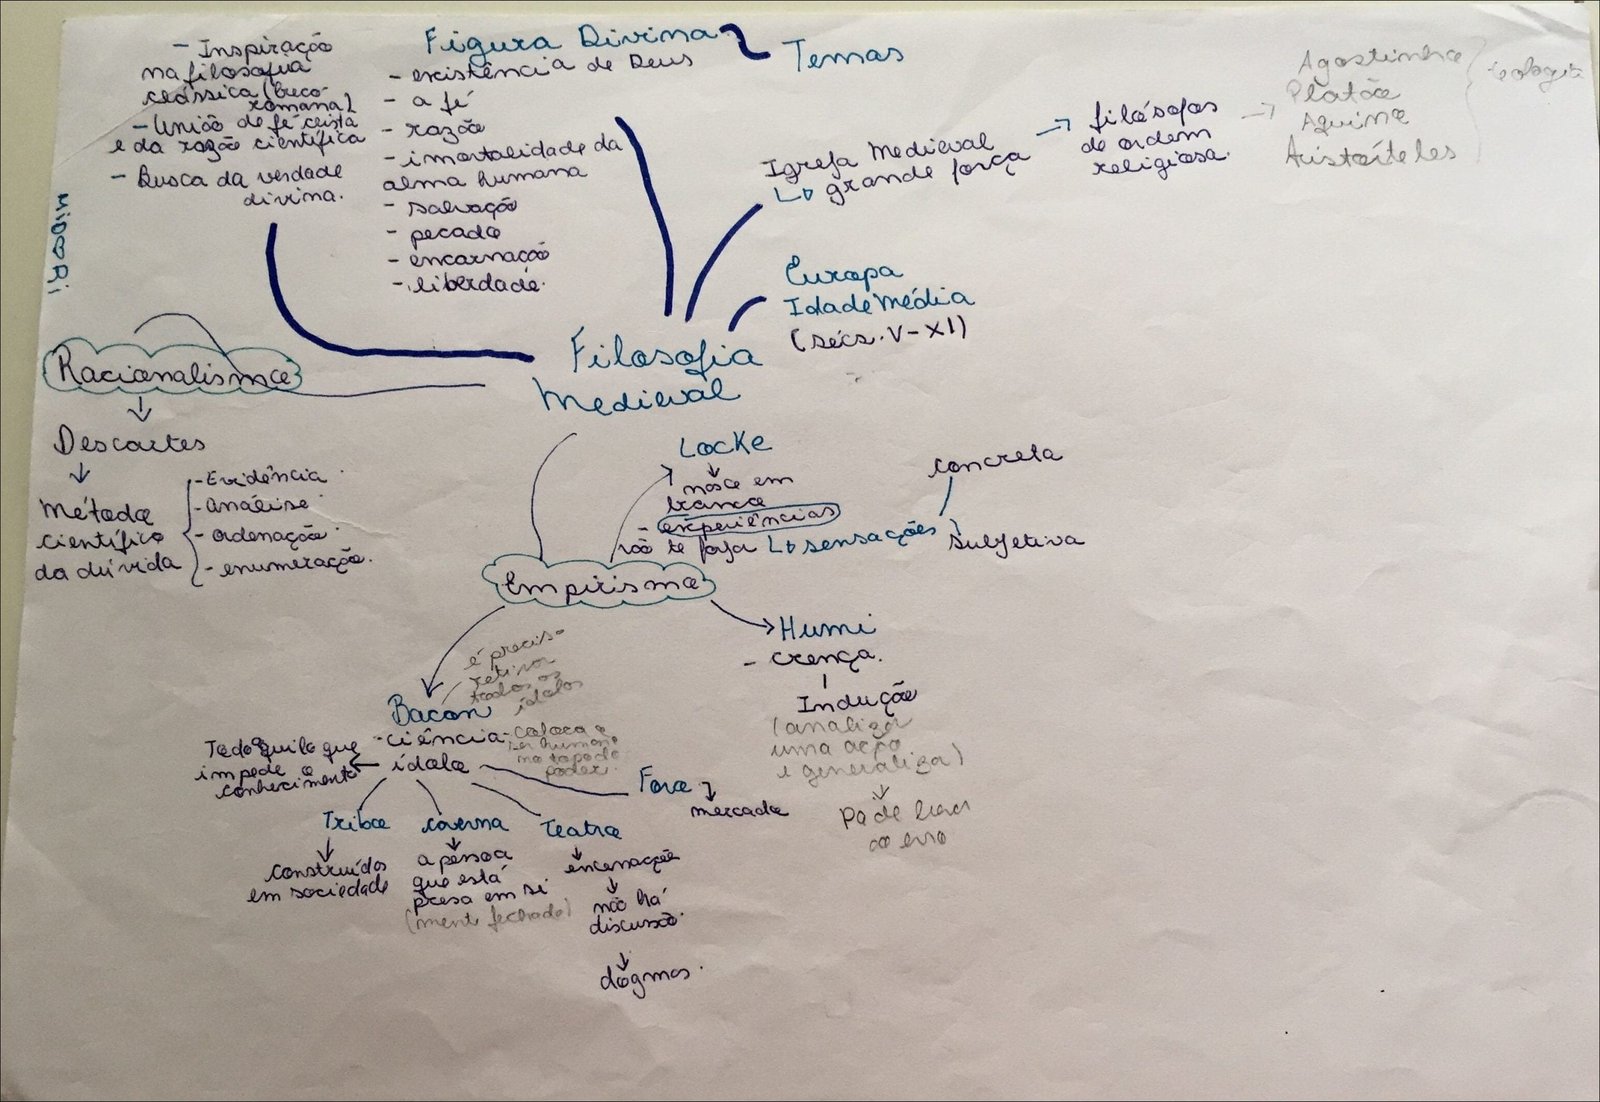 - Inspiração
na filosofia
clássica (Greco-
romana)
- União de fé cristã
e da razão científica
- Busca da verdade
divina.
Figura Divina
Temas
- existência de Deus
- a fé
- razão
- imortalidade da
alma humana
- salvação
- pecado
- encarnação
- liberdade.
Igreja Medieval
↳ grande força
→ filósofos
de ordem
religiosa.
→ Agostinho
Platão
Aquino
Aristóteles
teologia
Europa
Idade Média
(sécs. V - XI)
MiDORi
Filosofia
Medieval
Racionalismo
Descartes
Método
científico
da dúvida
- Evidência
- análise
- ordenação
- enumeração.
Locke
nasce em
branco
- experiências
↳ sensações
concreta
Subjetiva
Empirismo
Humi
- crença.
Indução
(analizar
uma ação
e generaliza)
Pode levar
ao erro
é preciso
retirar
todos os
ídolos
Bacon
- ciência - coloca o
ser humano
no topo do
poder.
ídolo
Todo aquilo que
impede o
conhecimento
Tribo
construídos
em sociedade
Caverna
a pessoa
que está
presa em si
(mente fechada)
Teatro
encenação
não há
discussão.
dogmas.
Foro
mercado